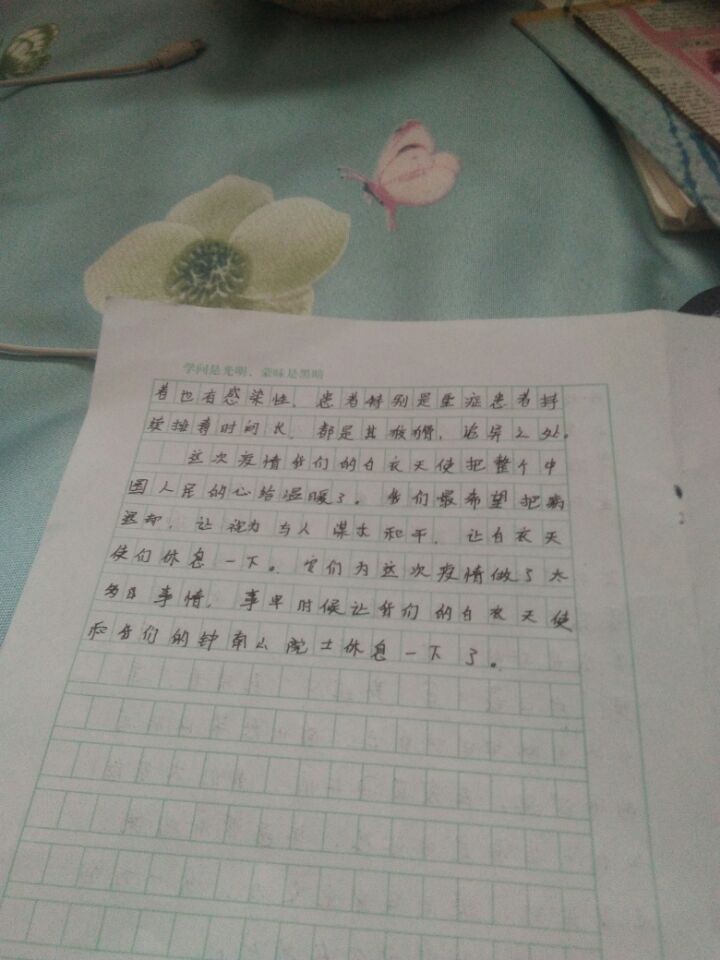 学问是光明、蒙昧是黑暗
者也有感染性，患者特别是重症患者持
续排毒时间长，都是其狡猾，诡异之处。
这次疫情我们的白衣天使把整个中
国人民的心给温暖了。我们最希望把病
让 为 人 谋求和平，让白衣天
使们休息一下。们为这次疫情做了太
多 事情，时候让我们的白衣天使
和我们的钟南山院士休息一下了。